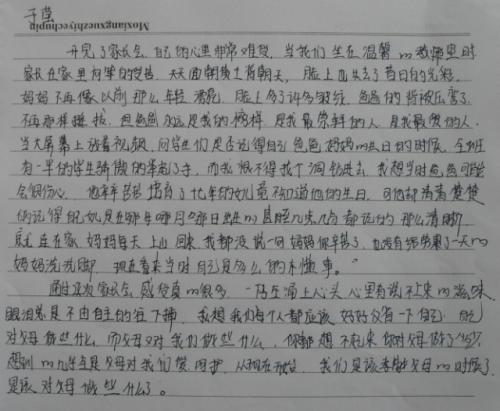 于莹
Moxiangxuezhiyechupin
开完了家长会,自己的心里非常难受,当我们坐在温馨的教师里时
家长在家里为学的,天天面朝黄土背朝天,脸上也失去了昔日的光彩
妈妈不再像以前那么年轻漂亮,脸上多了许多皱纹,爸爸的背被压弯了
不再那样挺拔,但爸爸永远是我的榜样,是我最崇拜的人,是我最爱的人.
当大屏幕上放着视频,问学生们是否记得自己爸爸妈妈的生日的时候,全班
有一半的学生骄傲的举起了手,而我恨不得找个洞钻进去,我想当时爸爸可能
会很伤心,他辛辛苦苦培育了十七年的女儿竟不知道他的生日,可他却清清楚楚
的记得他女儿是在哪年哪月哪日出生的且几点几分都记的那么清晰
就连在家,妈妈每天上山回来,我都没说一句妈妈你辛苦了,也没有给劳累了一天的
妈妈洗洗脚,现在看来当时自己是多么的不懂事。"
通过这次家长会,感受真的很多,一阵在涌上心头,心里有说不上来的滋味
眼泪总是不由自主的往下掉,我想我们每个人都应该好好反省一下自己,自己
对父母做些什么,而父母又对我们做些什么,你都想不起来你对父母做了什么,
想到的几乎全是父母对我们呵护,从现在开始,我们是该孝敬父母的时候了,
是该对父母做些什么了。